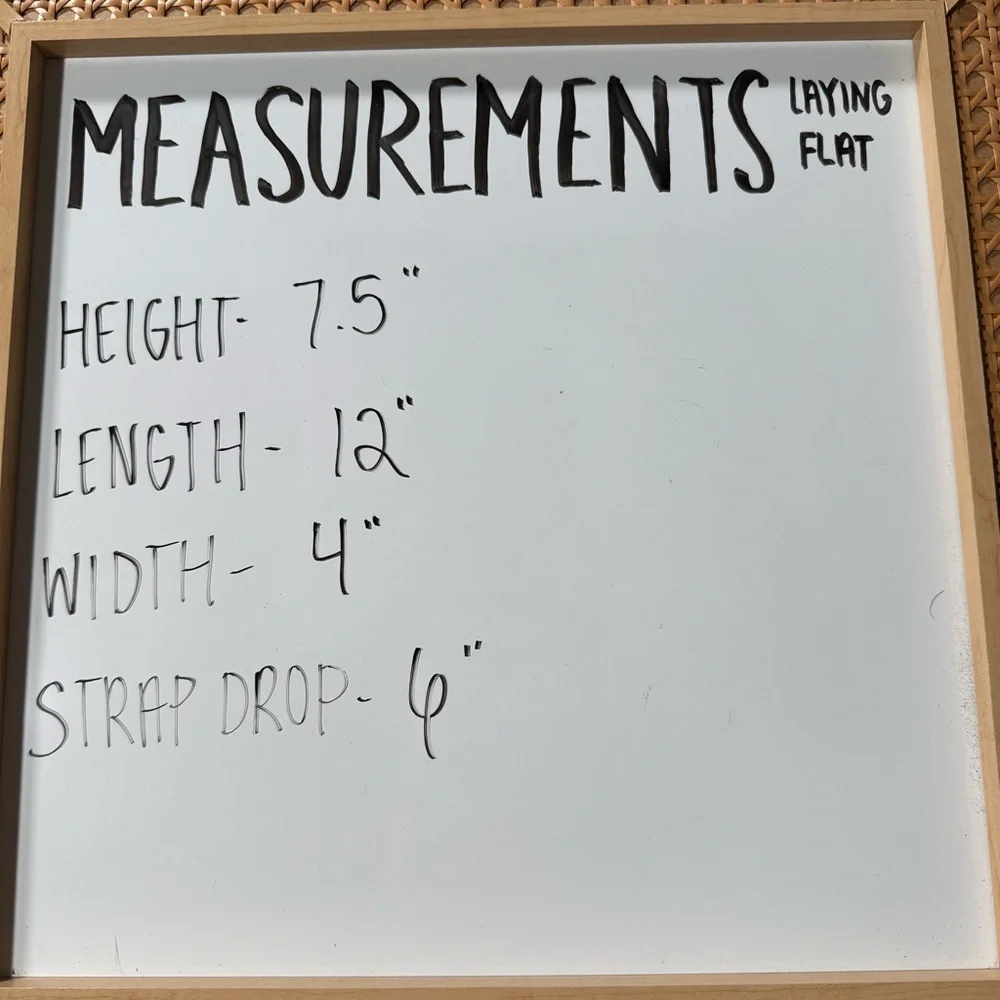 MEASUREMENTS LAYING FLAT
HEIGHT- 7.5"
LENGTH- 12"
WIDTH- 4"
STRAP DROP- 6"